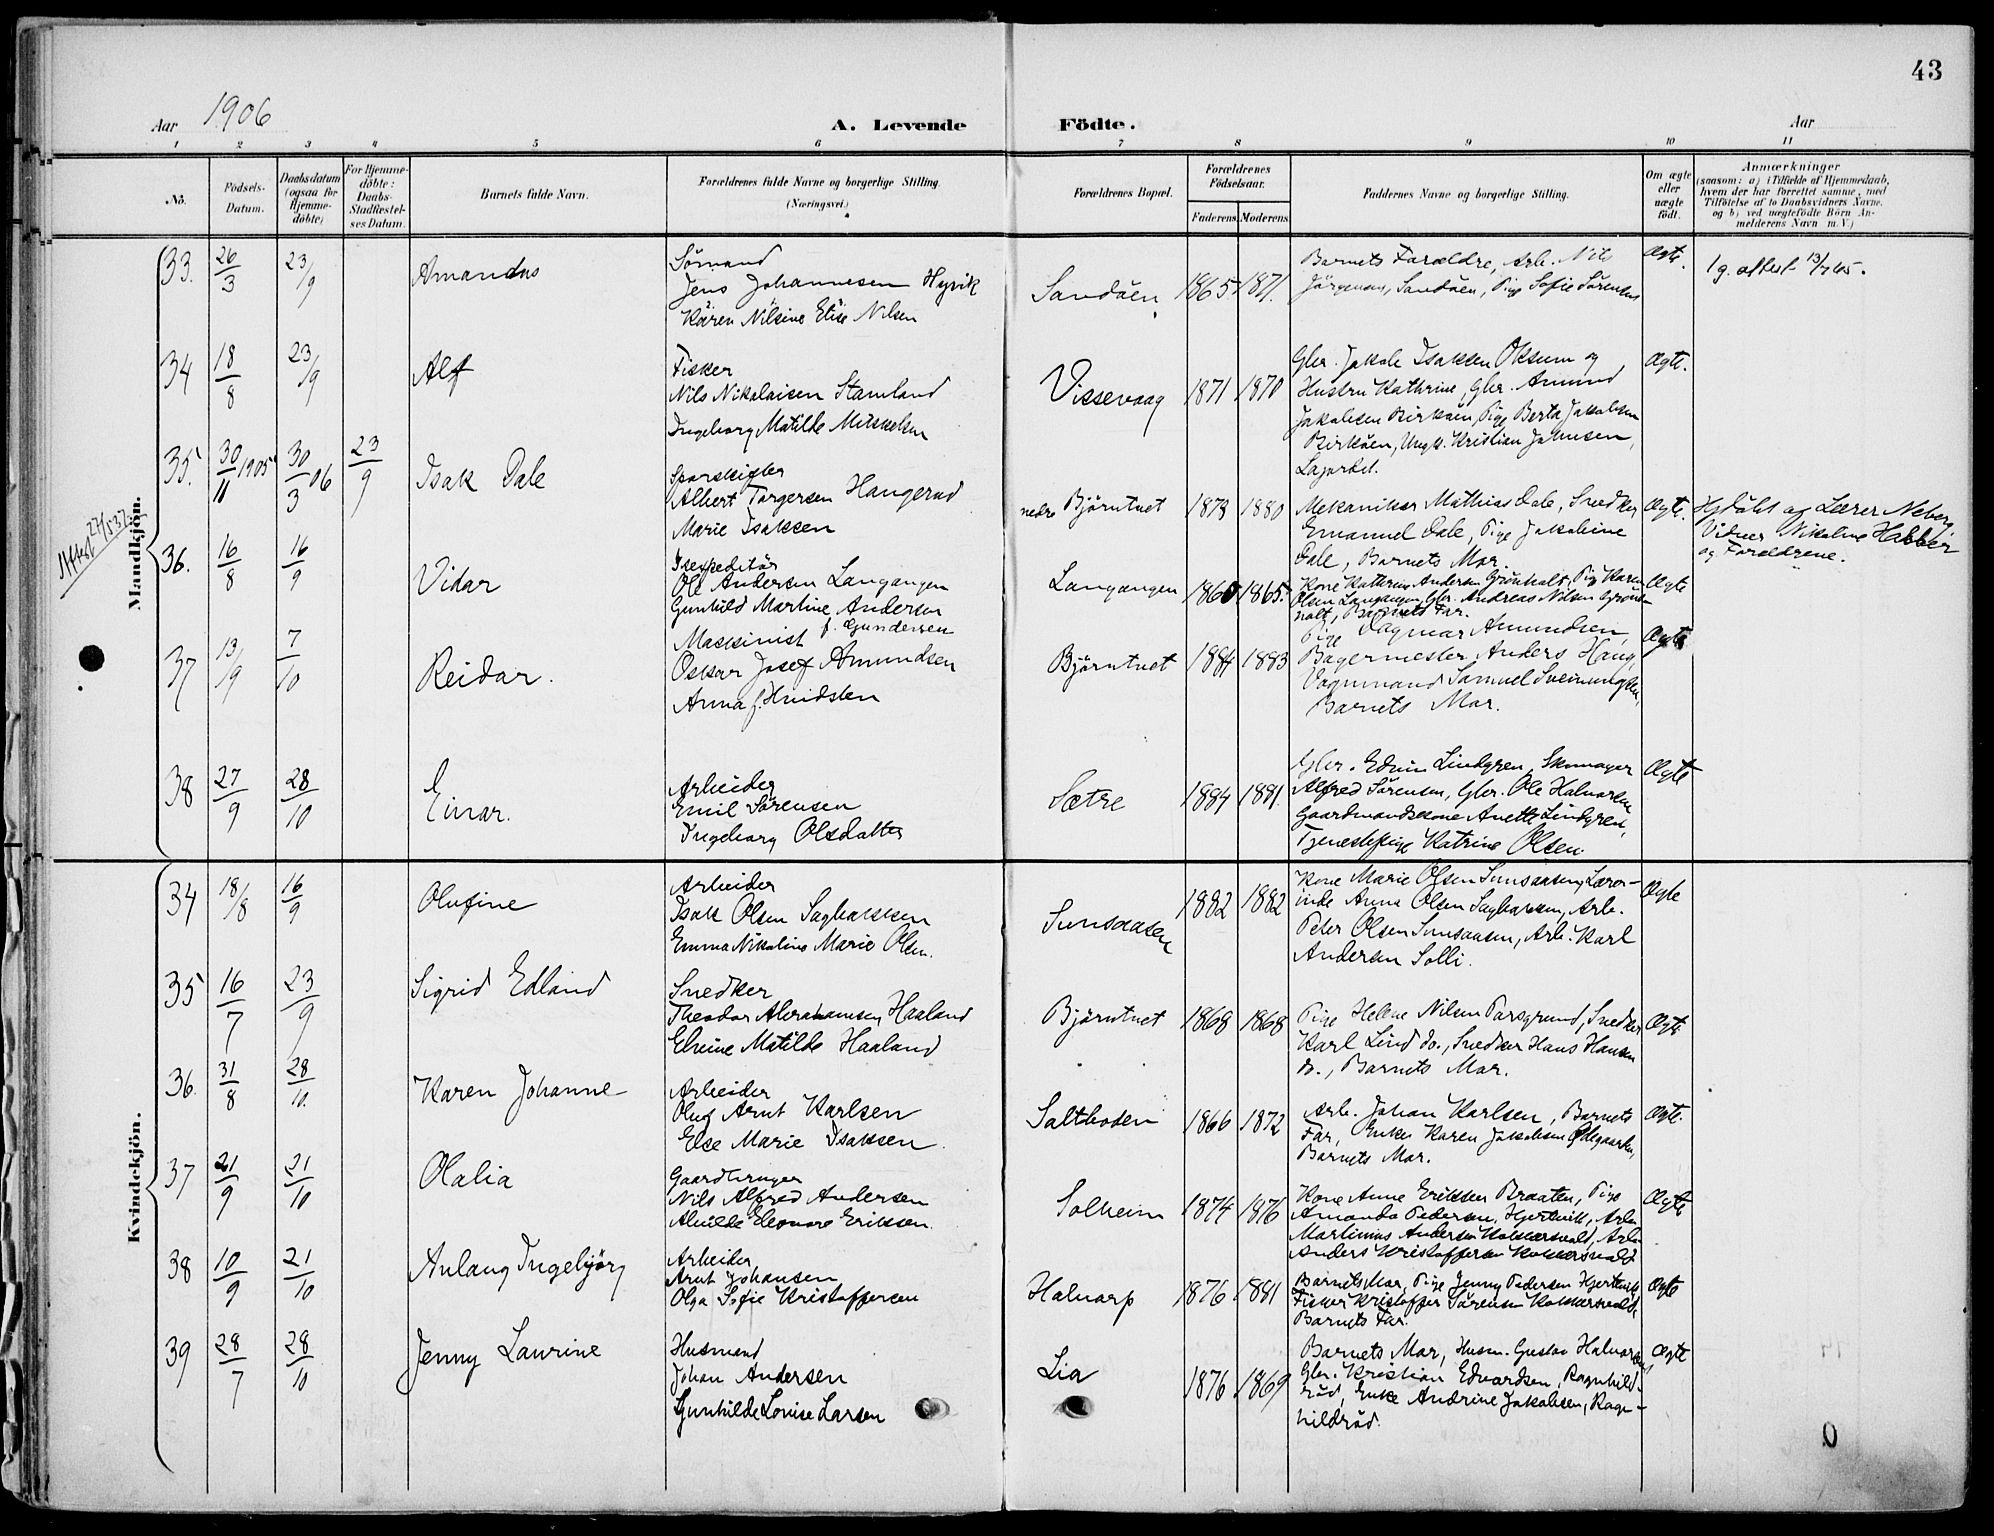 43
Aar 1906
A. Levende Födte.
Aar
1 2 3 4 5 6 7 8 9 10 11
No.
Födsels-
Datum.
Daabsdatum
(ogsaa for
Hjemme-
döbte)
For Hjemme-
döbte:
Daabs-
Stadfæstel-
ses Datum.
Barnets fulde Navn.
Forældrenes fulde Navne og borgerlige Stilling.
(Næringsvei.)
Forældrenes Bopæl.
Forældrenes
Födselsaar.
Faderens. Moderens.
Faddernes Navne og borgerlige Stilling.
Om ægte
eller
uægte
födt.
Anmærkninger
(saasom: a) i Tilfælde af Hjemmedaab,
hvem der har forrettet samme, med
Tilföielse af to Daabsvidners Navne,
og b) ved uægtefödte Börn An-
melderens Navn m. V.)
Mandkjön.
33. 26/3 23/9 Amandus
Sömand
Jens Johannesen Hysvik
Karen Nilsine Elise Nilsen
Sandöen 1865 1871.
Barnets Forældre, Arb. Nils
Jörgensen, Sandöen, Pige Sofie Sörensen
Ægte.
34 18/8 23/9 Alf
Fisker
Nils Nikolaisen Stamland
Ingeborg Matilde Mikkelsen
Vissevaag 1871 1870
Gbr. Jakob Isaksen Oksum og
Hustru Kathrine, Gbr. Amund
Jakobsen Birköen, Pige Berta Jakobsen
Birköen, Ungk. Kristian Johnsen,
Ægte.
35. 30/11 1905 30/3 06 23/9 Isak Dale
Albert Torgersen Haugerud
Marie Isaksen
nedre Björntvet 1873 1880
Mekaniker Mathias Dale, Snedker
Emanuel Dale, Pige Jakobine
Dale, Barnets Mor.
Ægte.
Hjdöbt af Lærer Neberg
Vidner Nikoline
og Forældrene.
Attest
36. 16/8 16/9 Vidar
Isexpeditör
Ole Andersen Langangen
Gunhild Martine Andersen
f. Gundersen
Langangen 1865.
Kone Kathrine Andersen Grönholt, Pige Karen
Olsen Langangen, Gbr. Andreas Nilsen Grön-
holt, Barnets Far.
Ægte
37 13/9 7/10 Reidar.
Maskinist
Oskar Josef Amundsen
Anna f. Knidsten
Björntvet 1884 1883
Pige Dagmar Amundsen,
Bagermester Anders Haug,
Vognmand Samuel Sveinungsen,
Barnets Mor.
Ægte
38 27/9 28/10 Einar.
Arbeider
Emil Sörensen
Ingeborg Olsdatter
Sætre 1884 1881.
Gbr. Edvin Lindgren, Skomager
Alfred Sörensen, Gbr. Ole Halvorsen
Gaardmandskone Anette Lindgren,
Tjenestepige Katrine Olsen.
Ægte
Kvindekjön.
34 18/8 16/9 Olufine
Arbeider
Isak Olsen Sagbakken
Emma Nikoline Marie Olsen.
Sunsaasen 1882 1882
Kone Marie Olsen Sunsaasen, Lærer-
inde Anna Olsen Sagbakken, Arb.
Peter Olsen Sunsaasen, Arb. Karl
Andersen Solli.
Ægte
35 16/7 23/9 Sigrid Edland
Snedker
Theodor Abrahamsen Haaland
Elvine Matilde Haaland
Björntvet 1868 1868
Pige Helene Nilsen Porsgrund, Snedker
Karl Lind do., Snedker Hans Hansen
do., Barnets Mor.
Ægte
36. 31/8 28/10. Karen Johanne
Arbeider
Oluf Arnt Karlsen
Else Marie Isaksen.
Saltboden 1866 1872
Arb. Johan Karlsen, Barnets
Far, Enke Karen Jakobsen Ödegaarden,
Barnets Mor.
Ægte.
37 21/9 21/10 Olalia
Gaardbruger
Nils Alfred Andersen
Alvilde Eleonore Eriksen.
Solheim 1874 1876
Kone Anne Eriksen Braaten, Pige
Amanda Pedersen, Hjertvik, Arb.
Martinius Andersen Kokkersvold, Arb.
Anders Kristoffersen Kokkersvold
Ægte
38 10/9 21/10 Aulaug Ingebjörg
Arbeider
Arnt Johansen
Olga Sofie Kristoffersen
Halvarp 1876 1881
Barnets Mor, Pige Jenny Pedersen Hjertvik
Fisker Kristoffer Sörensen Kokkersvold,
Barnets Far.
Ægte
39 28/7 28/10 Jenny Laurine
Husmand
Johan Andersen
Gunhilde Lovise Larsen
Lia 1876 1869
Barnets Mor, Husm. Gustav Halvorsen,
Gbr. Kristian Edvardsen, Ragnhild-
röd, Enke Andrine Jakobsen, Ragn-
hildröd.
Ægte